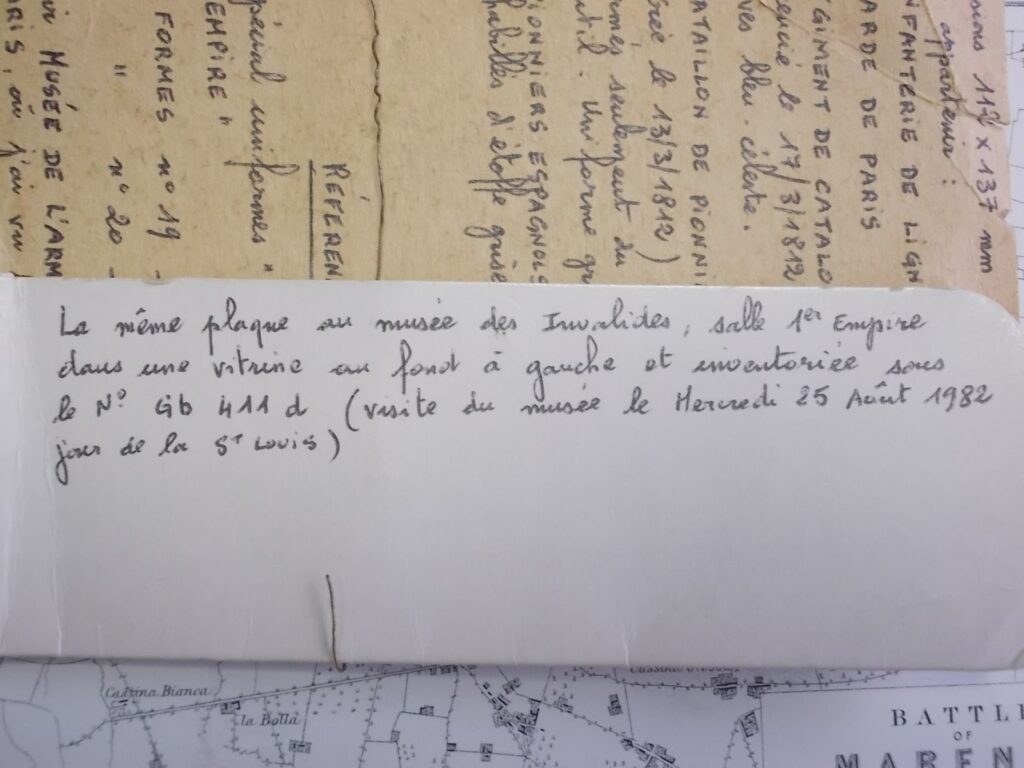 sions 112 x 137 mm
appartenir :
NFANTERIE DE LIGN
ARDE DE PARIS
GIMENT DE CATALO
encié le 17/3/1812
ves bleu-céleste.
ATAILLON DE PIONNI
le 13/3/1812)
rmés seulement du
util. Uniforme gr
IONNIERS ESPAGNOLS
habillés d'étoffe grise
RÉFÉREN
pécial uniformes "
EMPIRE "
FORMES n° 19 -
" n° 20 -
MUSÉE DE L'ARM
ARIS, où j'ai vu
La même plaque au musée des Invalides, salle 1er Empire
dans une vitrine au fond à gauche et inventoriée sous
le N° Gb 411 d (visite du musée le Mercredi 25 Août 1982
jour de la St Louis)
Cassina Bianca
la Bolla
BATTL
OF
MAREN